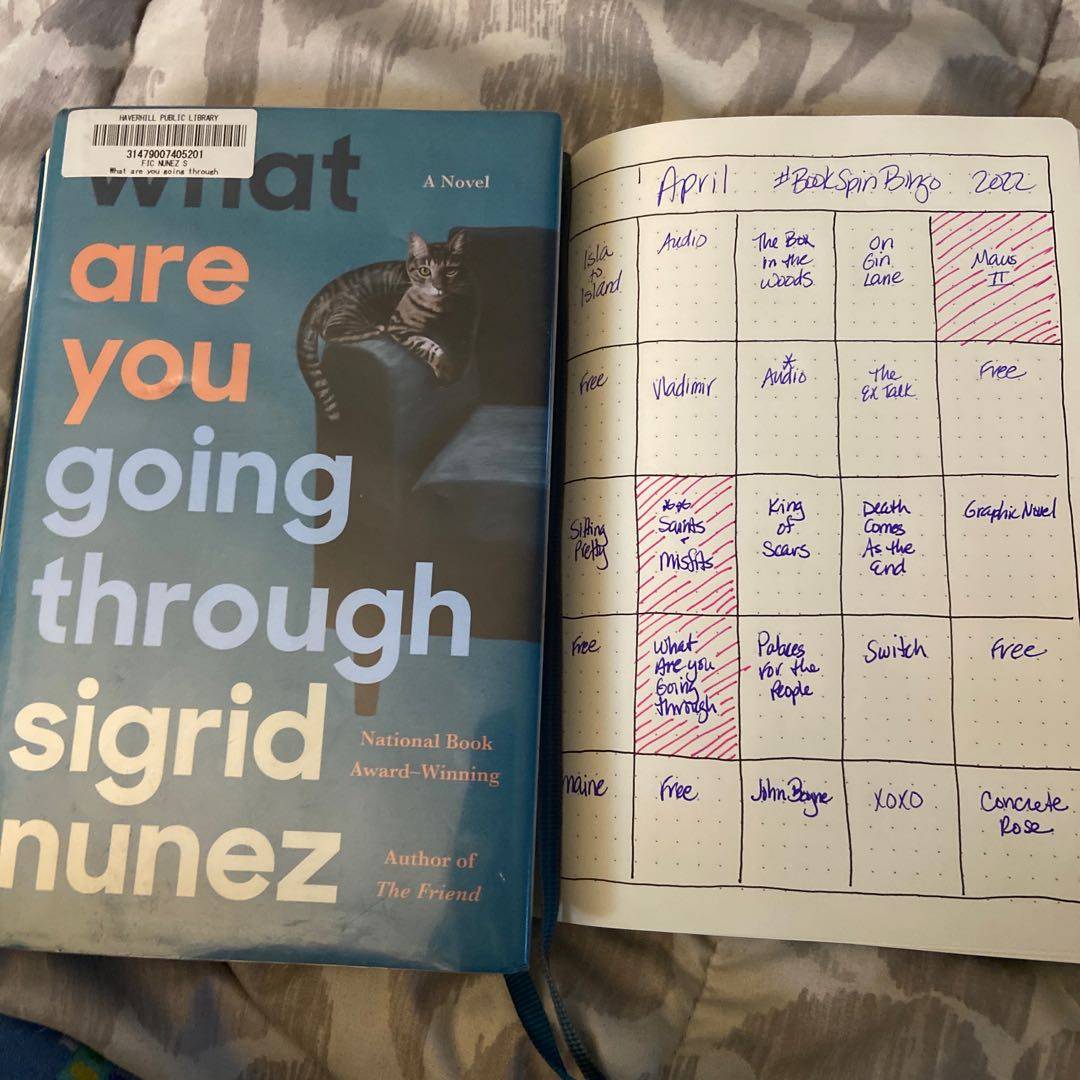 HAVERHILL PUBLIC LIBRARY
31479007405201
FIC NUNEZ S
What are you going through
what
A Novel
are
you
going
through
sigrid
National Book
Award–Winning
nunez
Author of
The Friend
April #BookSpinBingo 2022
Isla
to
Island
Audio
The Box
in the
Woods
On
Gin
Lane
Maus
II
Free
Vladimir
*
Audio
The
Ex Talk
Free
Sitting
Pretty
Saints
+
Misfits
King
of
Scars
Death
Comes
As the
End
Graphic Novel
Free
What
Are you
Going
Through
Palaces
For the
People
Switch
Free
maine
Free
John Boyne
XOXO
Concrete
Rose